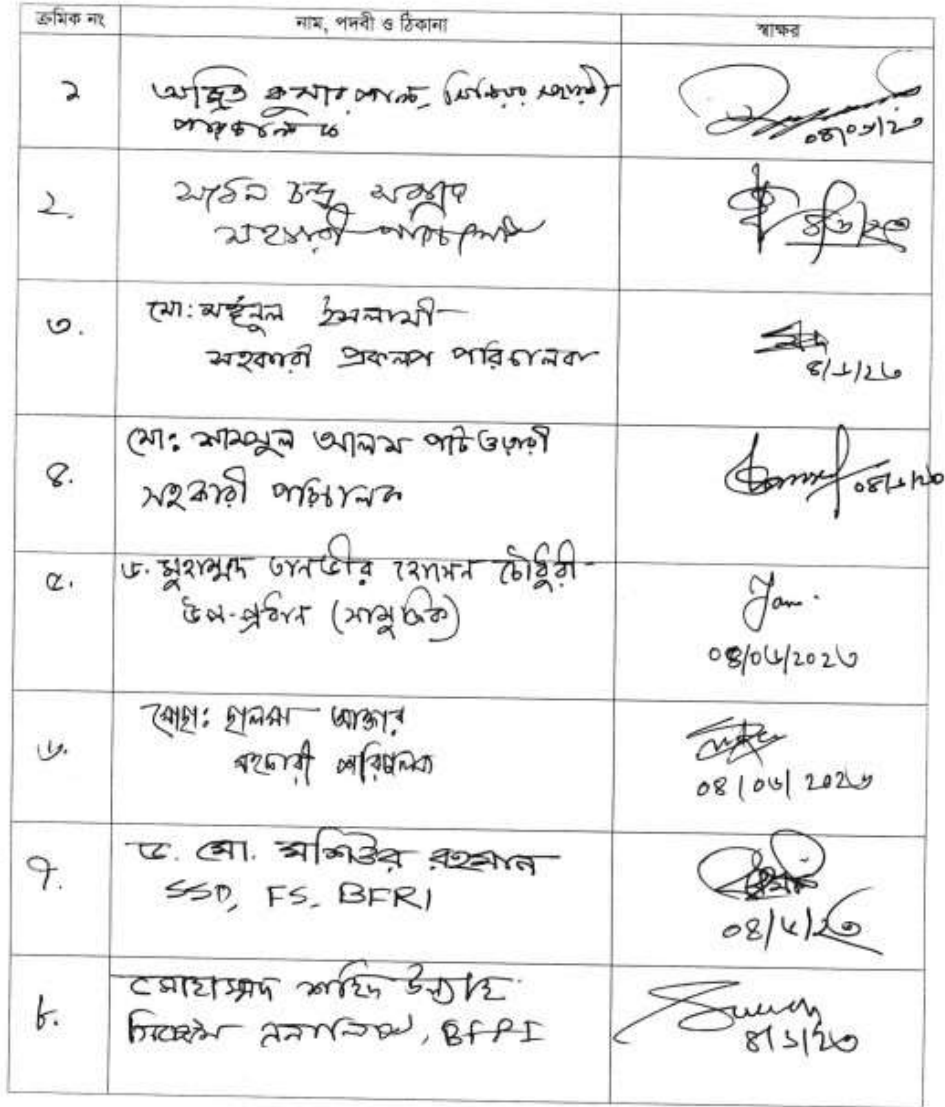 ক্রমিক নং নাম, পদবী ও ঠিকানা স্বাক্ষর
১ অজিত কুমার পাল, সিনিয়র সহকারী
পরিচালক
08/০৬/২৩
২. চন্দ্র সরকার
সহকারী পরিচালক
৪/৬/২৩
৩. মো: মঈনুল ইসলাম
সহকারী প্রকল্প পরিচালক
৪/৬/২৩
৪. মো: শামসুল আলম পাটওয়ারী
সহকারী পরিচালক
০৪/৬/২৩
৫. ড. মুহাম্মদ তানভীর হোসেন চৌধুরী
উপ-প্রধান (সামুদ্রিক)
০৪/০৬/২০২৩
৬. মোছা: ছালমা আক্তার
সহকারী পরিচালক
০৪/০৬/২০২৩
৭. ড. মো. মশিউর রহমান
SSO, FS, BFRI
০৪/৬/২৩
৮. মোহাম্মদ শহিদ উল্যাহ
সিস্টেম এনালিস্ট, BFRI
৪/৬/২৩